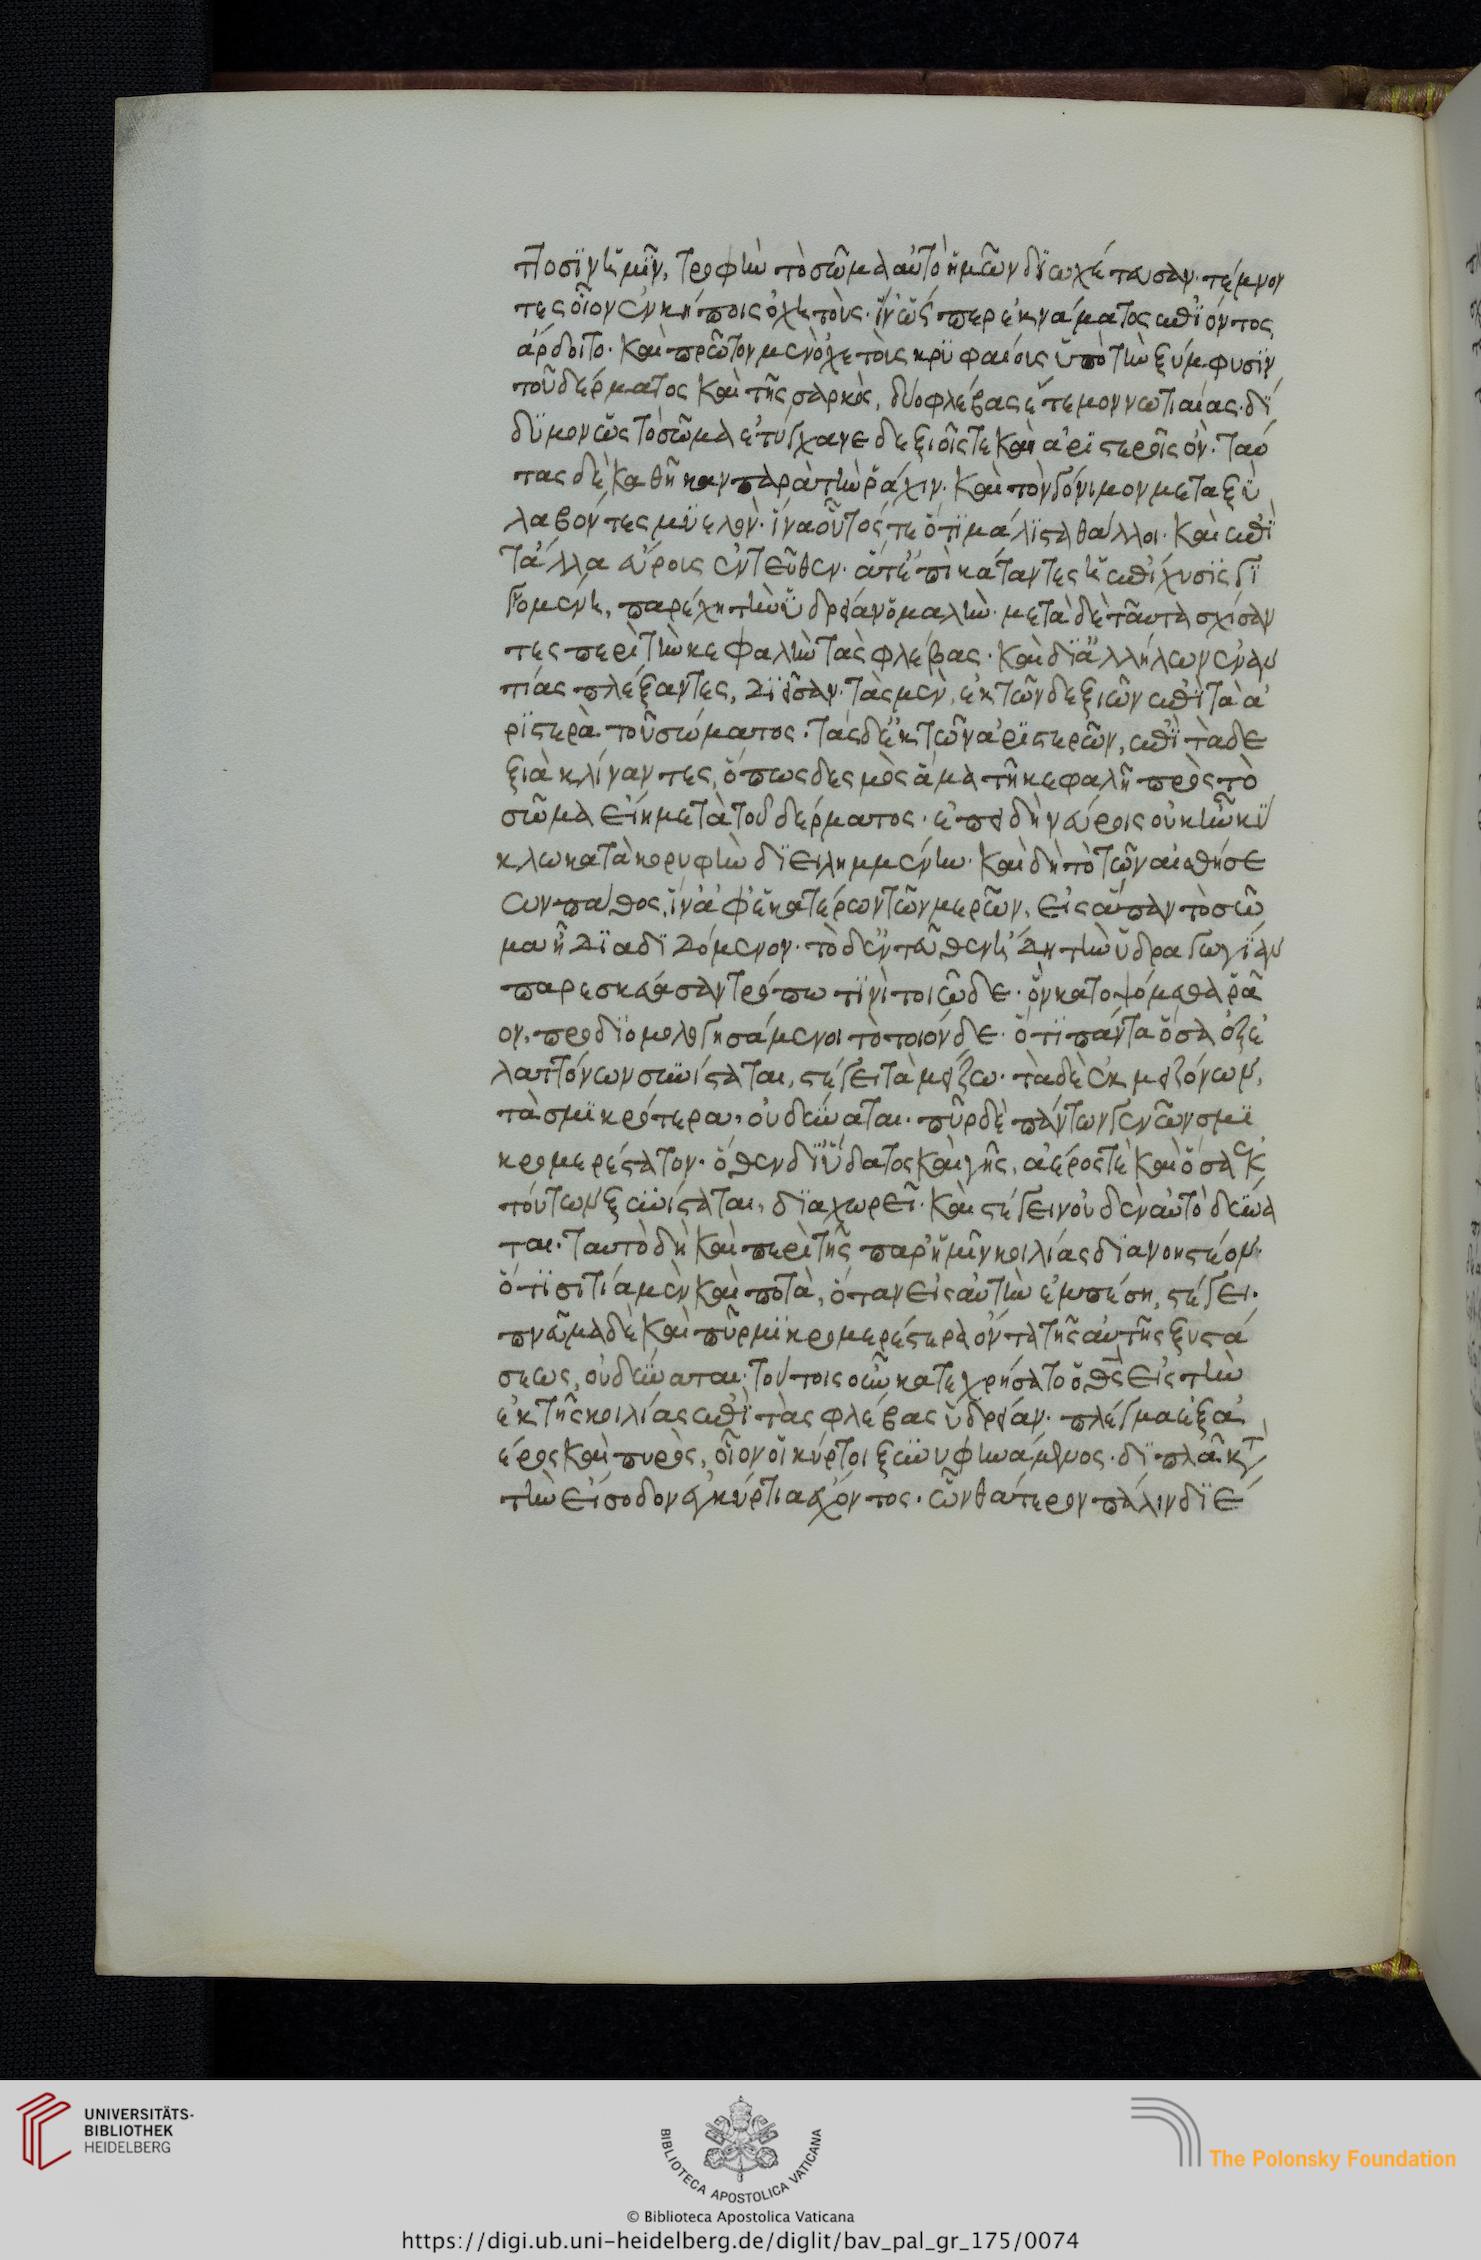 ττοσϊν ἡμῖν, τροφὴν τὸ σῶμα αὐτὸ ἡμῶν δϊωχέτευσαν· τέμνον
τες οἷον ἐν κήποις ὀχετοὺς· ἵν' ὥσπερ ἐκ νάματος ἐπϊόντος
ἄρδοιτο· καὶ πρῶτον μὲν ὀχετοὺς κρϋφαίοις ὑπὸ τὴν ξύμφυσϊν
τοῦ δέρματος καὶ τῆς σαρκὸς, δύο φλέβας ἔτεμον νωτιαίας· δΐ
δϋμον ὡς τὸ σῶμα ἐτύγχανε δεξιοῖς τε καὶ ἀρϊστεροῖς ὂν· ταύ
τας δὲ καθῆκαν παρὰ τὴν ῥάχιν· καὶ τὸν γόνιμον μεταξὺ
λαβόντες μϋελὸν· ἵνα οὗτός τε ὅτϊ μάλϊστα θάλλοι· καὶ ἐπὶ
τἄλλα εὔρους ἐντεῦθεν· ἅτ' ἐπὶ κάταντες ἡ ἐπίχυσϊς γϊ
γνομένη, παρέχῃ τὴν ὑδρείαν ὁμαλὴν· μετὰ δὲ ταῦτα σχίσαν
τες περὶ τὴν κεφαλὴν τὰς φλέβας· καὶ δϊ' ἀλλήλων ἐναν
τίας πλέξαντες, διεῖσαν· τὰς μὲν, ἐκ τῶν δεξιῶν ἐπὶ τὰ ἀ
ρϊστερὰ τοῦ σώματος· τὰς δ' ἐκ τῶν ἀρϊστερῶν, ἐπὶ τὰ δε
ξιὰ κλίναντες, ὅπως δεσμὸς ἅμα τῇ κεφαλῇ πρὸς τὸ
σῶμα εἴη μετὰ τοῦ δέρματος· ἐπειδὴ νεύροις οὐκ ἦν κΰ
κλω κατὰ κορυφὴν δϊειλημμένη· καὶ δὴ τὸ τῶν αἰσθήσε
ων πάθος, ἵν' ἀφ' ἑκατέρων τῶν μερῶν, εἰς ἅπαν τὸ σῶ
μα ᾖ δϊαδϊδόμενον· τὸ δ' ἐντεῦθεν ἤδη τὴν ὑδραγωγϊαν
παρεσκεύασαν τρόπω τϊνὶ τοιῶδε· ὃν κατοψόμεθα ῥᾶ
ον, προδϊομολογησάμενοι τὸ τοιόνδε· ὅτϊ πάντα ὅσα ἐξ ἐ
λαττόνων συνΐσταται, στέγει τὰ μείζω· τὰ δὲ ἐκ μειζόνων,
τὰ σμϊκρότερα, οὐ δύναται· πῦρ δὲ πάντων γενῶν σμϊ
κρομερέστατον· ὅθεν δϊ' ὕδατος καὶ γῆς, ἀέρος τὲ καὶ ὅσα ἐκ
τούτων ξυνίσταται, δϊαχωρεῖ· καὶ στέγειν οὐδὲν αὐτὸ δύνα
ται. ταυτὸ δὴ καὶ περὶ τῆς παρ' ἡμῖν κοιλίας δϊανοητέον·
ὅτϊ σιτία μὲν καὶ ποτὰ, ὅταν εἰς αὐτὴν ἐμπέση, στέγει·
πνεῦμα δὲ καὶ πῦρ μϊκρομερέστερα ὄντα τῆς αὑτῆς ξυστά
σεως, οὐ δύναται· τούτοις οὖν κατεχρήσατο ὁ θς εἰς τὴν
ἐκ τῆς κοιλίας ἐπὶ τὰς φλέβας ὑδρείαν· πλέγμα ἐξ ἀ
έρος καὶ πυρὸς, οἷον οἱ κύρτοι ξυνυφηνάμενος· δϊπλᾶ κτ
τὴν εἴσοδον ἐγκύρτια ἔχόντος· ὧν θάτερον πάλιν δϊέ
UNIVERSITÄTS-
BIBLIOTHEK
HEIDELBERG
BIBLIOTECA APOSTOLICA VATICANA
The Polonsky Foundation
© Biblioteca Apostolica Vaticana
https://digi.ub.uni-heidelberg.de/diglit/bav_pal_gr_175/0074